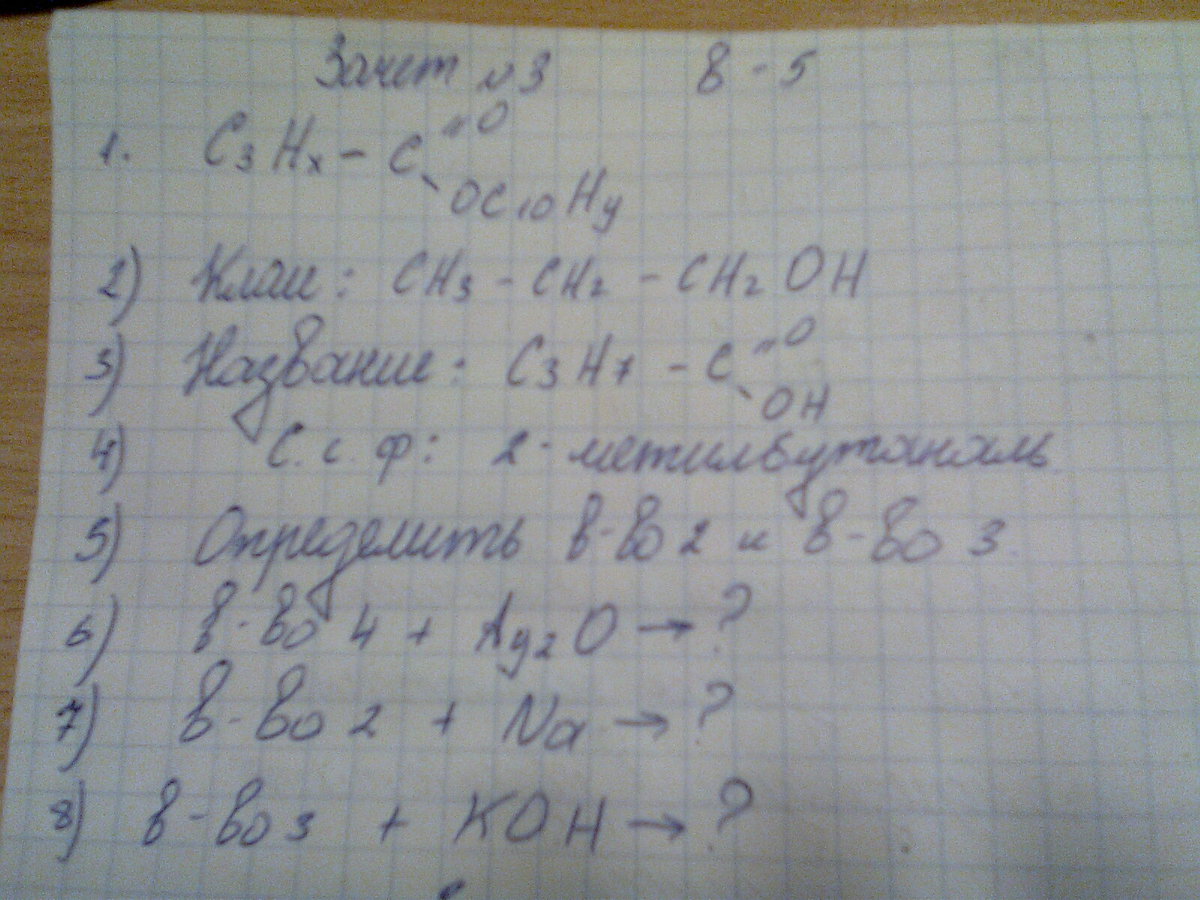 Зачет №3 В-5
1. C₃Hₓ - C =O
OC₁₀Hy
2) Класс: CH₃ - CH₂ - CH₂OH
3) Название: C₃H₇ - C =O
OH
4) С.с.ф: 2-метилбутаналь
5) Определить в-во 2 и в-во 3
6) в-во 4 + Ag₂O → ?
7) в-во 2 + Na → ?
8) в-во 3 + KOH → ?